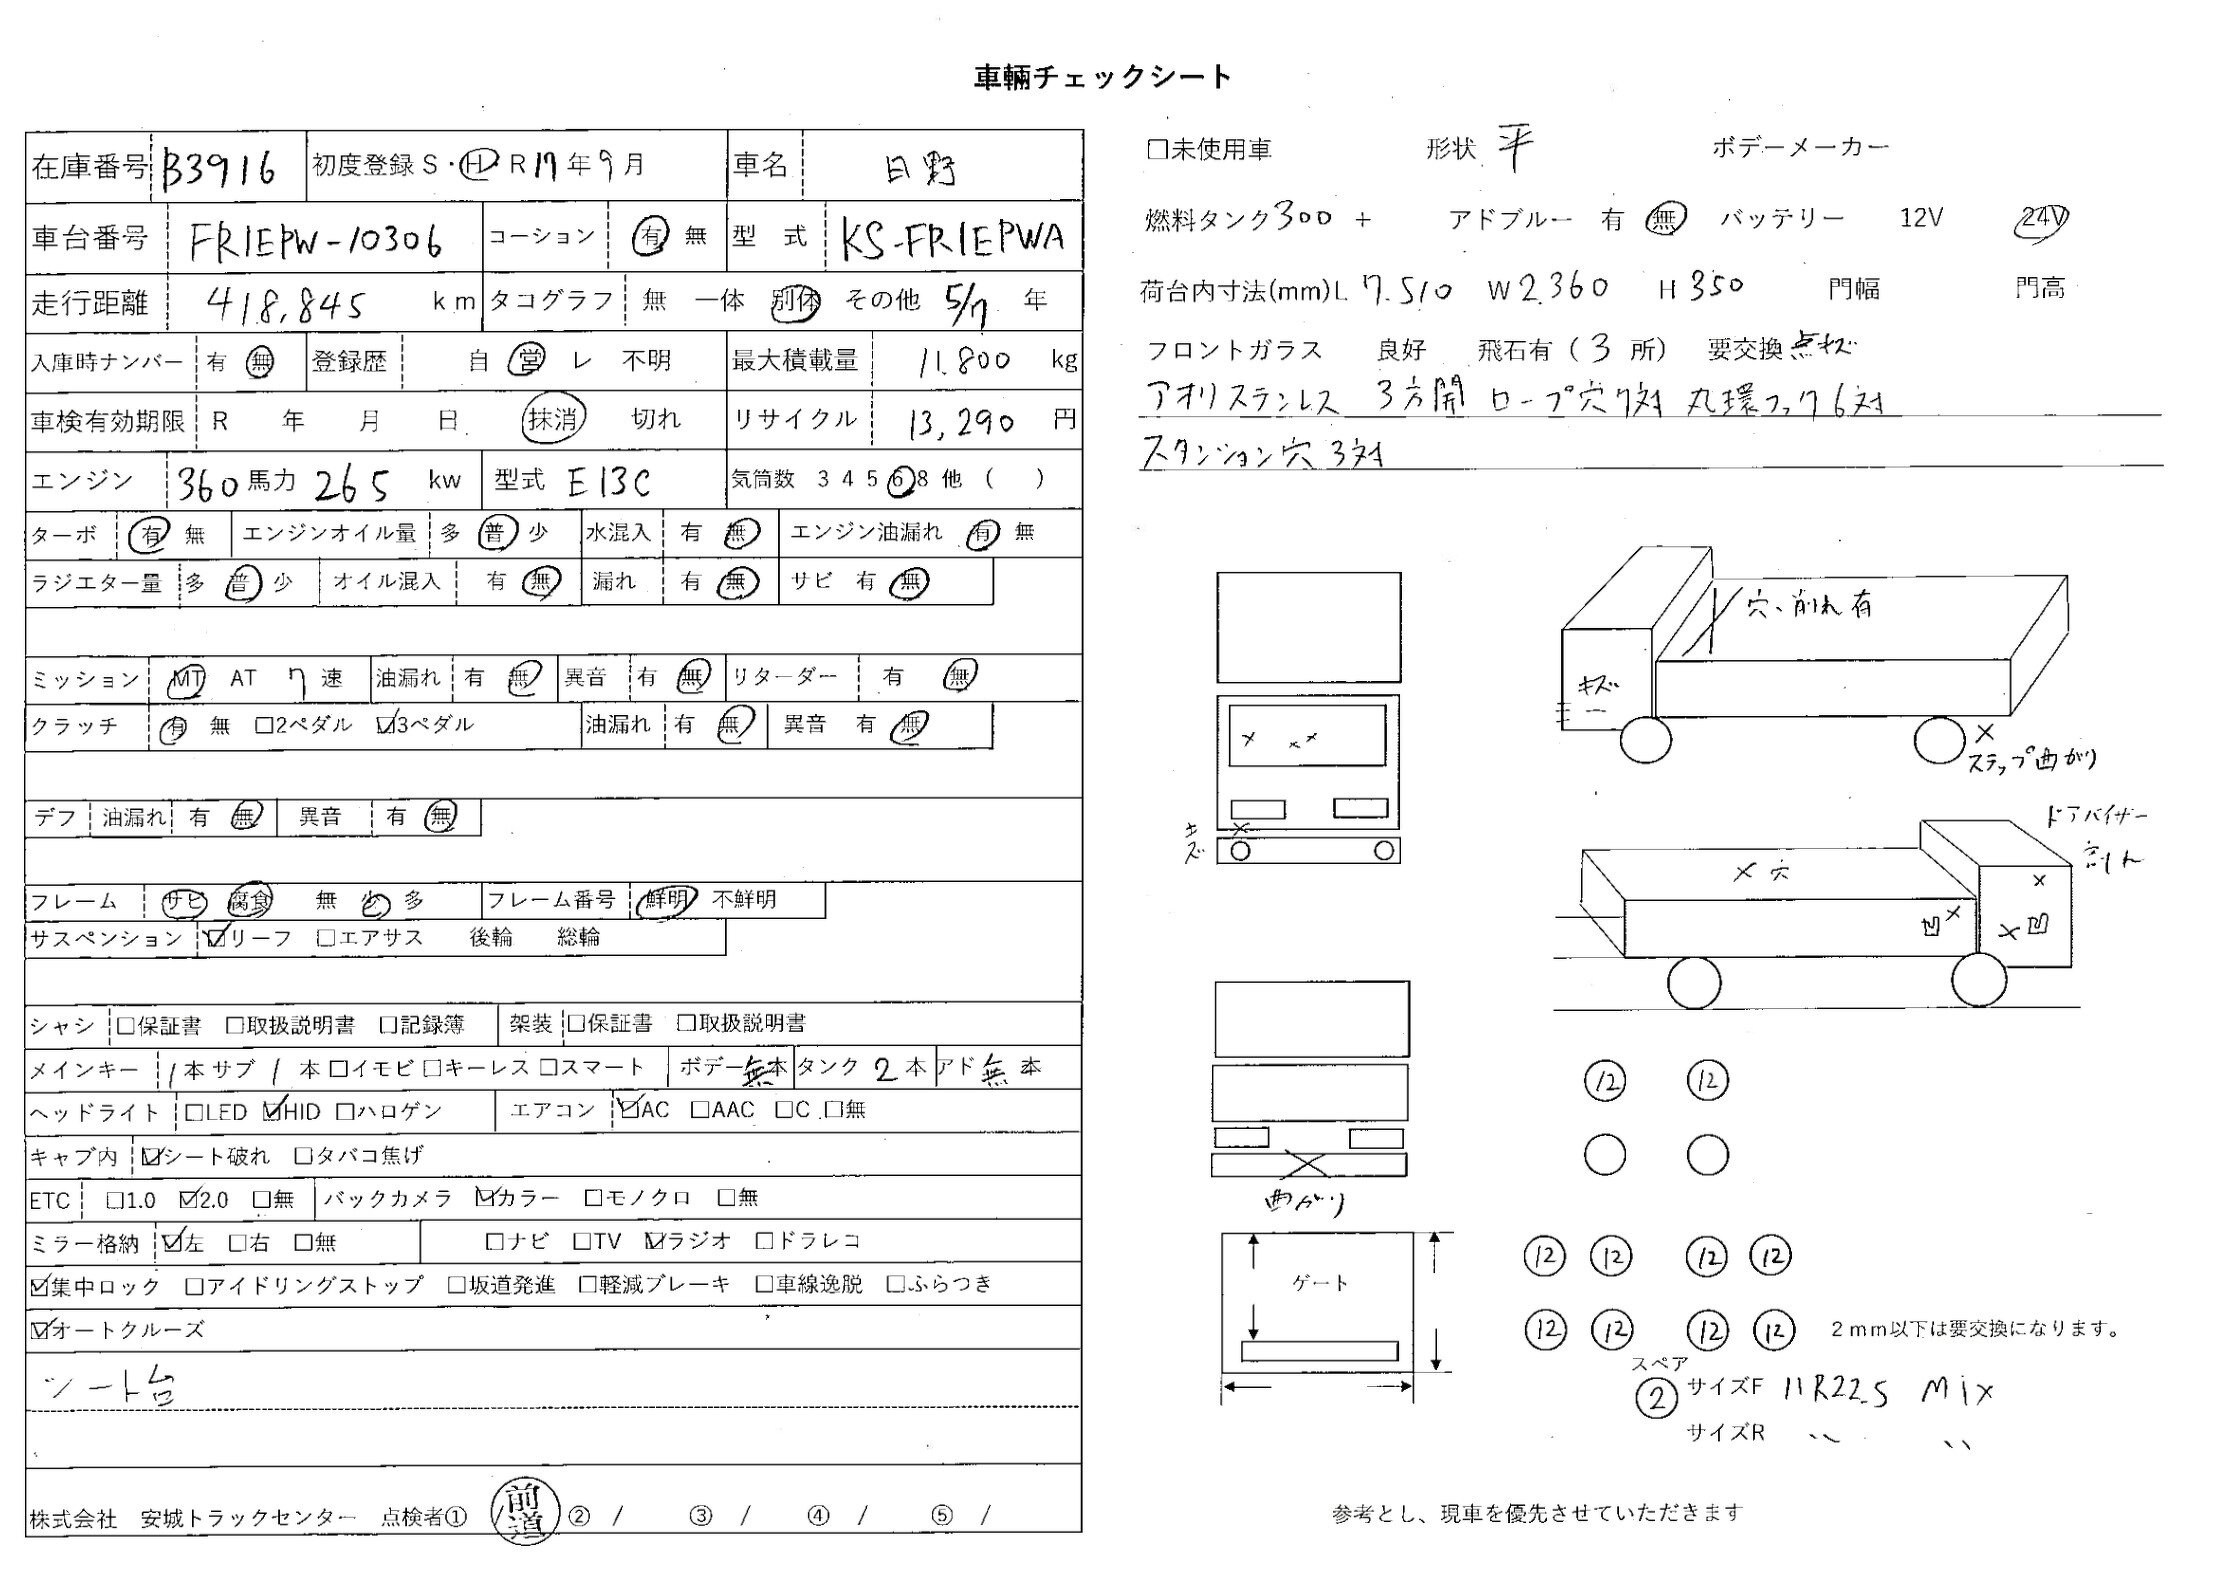 車輛チェックシート
在庫番号 B3916 初度登録 S・H・R 17年 9月 車名 日野
車台番号 FR1EPW-10306 コーション 有 無 型 式 KS-FR1EPWA
走行距離 418,845 km タコグラフ 無 一体 別体 その他 5/7 年
入庫時ナンバー 有 無 登録歴 自 営 レ 不明 最大積載量 11.800 kg
車検有効期限 R 年 月 日 抹消 切れ リサイクル 13,290 円
エンジン 360馬力 265 kw 型式 E13C 気筒数 3 4 5 6 8 他 ( )
ターボ 有 無 エンジンオイル量 多 普 少 水混入 有 無 エンジン油漏れ 有 無
ラジエター量 多 普 少 オイル混入 有 無 漏れ 有 無 サビ 有 無
ミッション MT AT 7 速 油漏れ 有 無 異音 有 無 リターダー 有 無
クラッチ 有 無 □2ペダル ☑3ペダル 油漏れ 有 無 異音 有 無
デフ 油漏れ 有 無 異音 有 無
フレーム サビ 腐食 無 少 多 フレーム番号 鮮明 不鮮明
サスペンション ☑リーフ □エアサス 後輪 総輪
シャシ □保証書 □取扱説明書 □記録簿 架装 □保証書 □取扱説明書
メインキー 1本 サブ 1 本 □イモビ □キーレス □スマート ボデー無本 タンク 2 本 アド無 本
ヘッドライト □LED ☑HID □ハロゲン エアコン ☑AC □AAC □C □無
キャブ内 ☑シート破れ □タバコ焦げ
ETC □1.0 ☑2.0 □無 バックカメラ ☑カラー □モノクロ □無
ミラー格納 ☑左 □右 □無 □ナビ □TV ☑ラジオ □ドラレコ
☑集中ロック □アイドリングストップ □坂道発進 □軽減ブレーキ □車線逸脱 □ふらつき
☑オートクルーズ
シート台
株式会社 安城トラックセンター 点検者① / 前道 ② / ③ / ④ / ⑤ /
□未使用車 形状 平 ボデーメーカー
燃料タンク300 + アドブルー 有 無 バッテリー 12V 24V
荷台内寸法(mm)L 7.510 W 2.360 H 350 門幅 門高
フロントガラス 良好 飛石有 ( 3 所) 要交換 点キズ
アオリステンレス 3方開 ロープ穴7対 丸環フック6対
スタンション穴 3対
穴、削れ有
キズ
ステップ曲がり
キズ
ドアバイザー
割れ
穴
凹 凹
曲がり
12 12
ゲート
12 12 12 12
12 12 12 12 2mm以下は要交換になります。
スペア
2 サイズF 11R22.5 Mix
サイズR 〃 〃
参考とし、現車を優先させていただきます